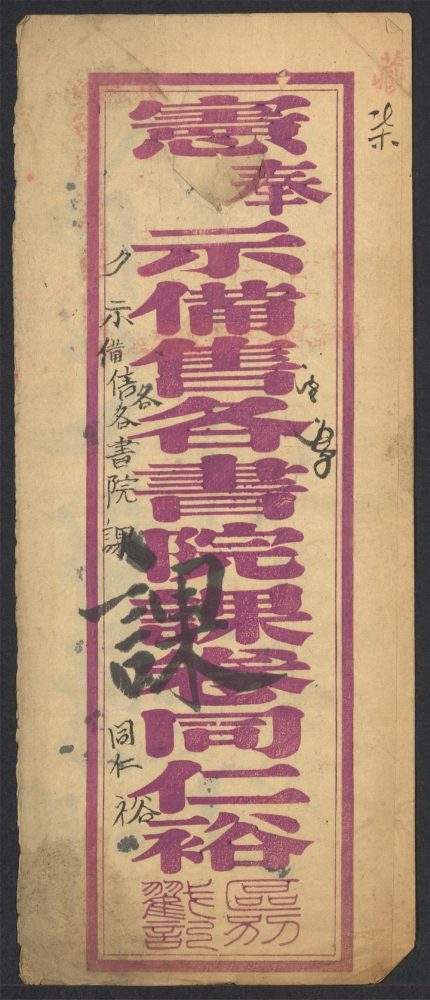 藏
柒
奉
憲示備售各書院課卷同仁裕
課
各
示備售各書院課
同仁裕